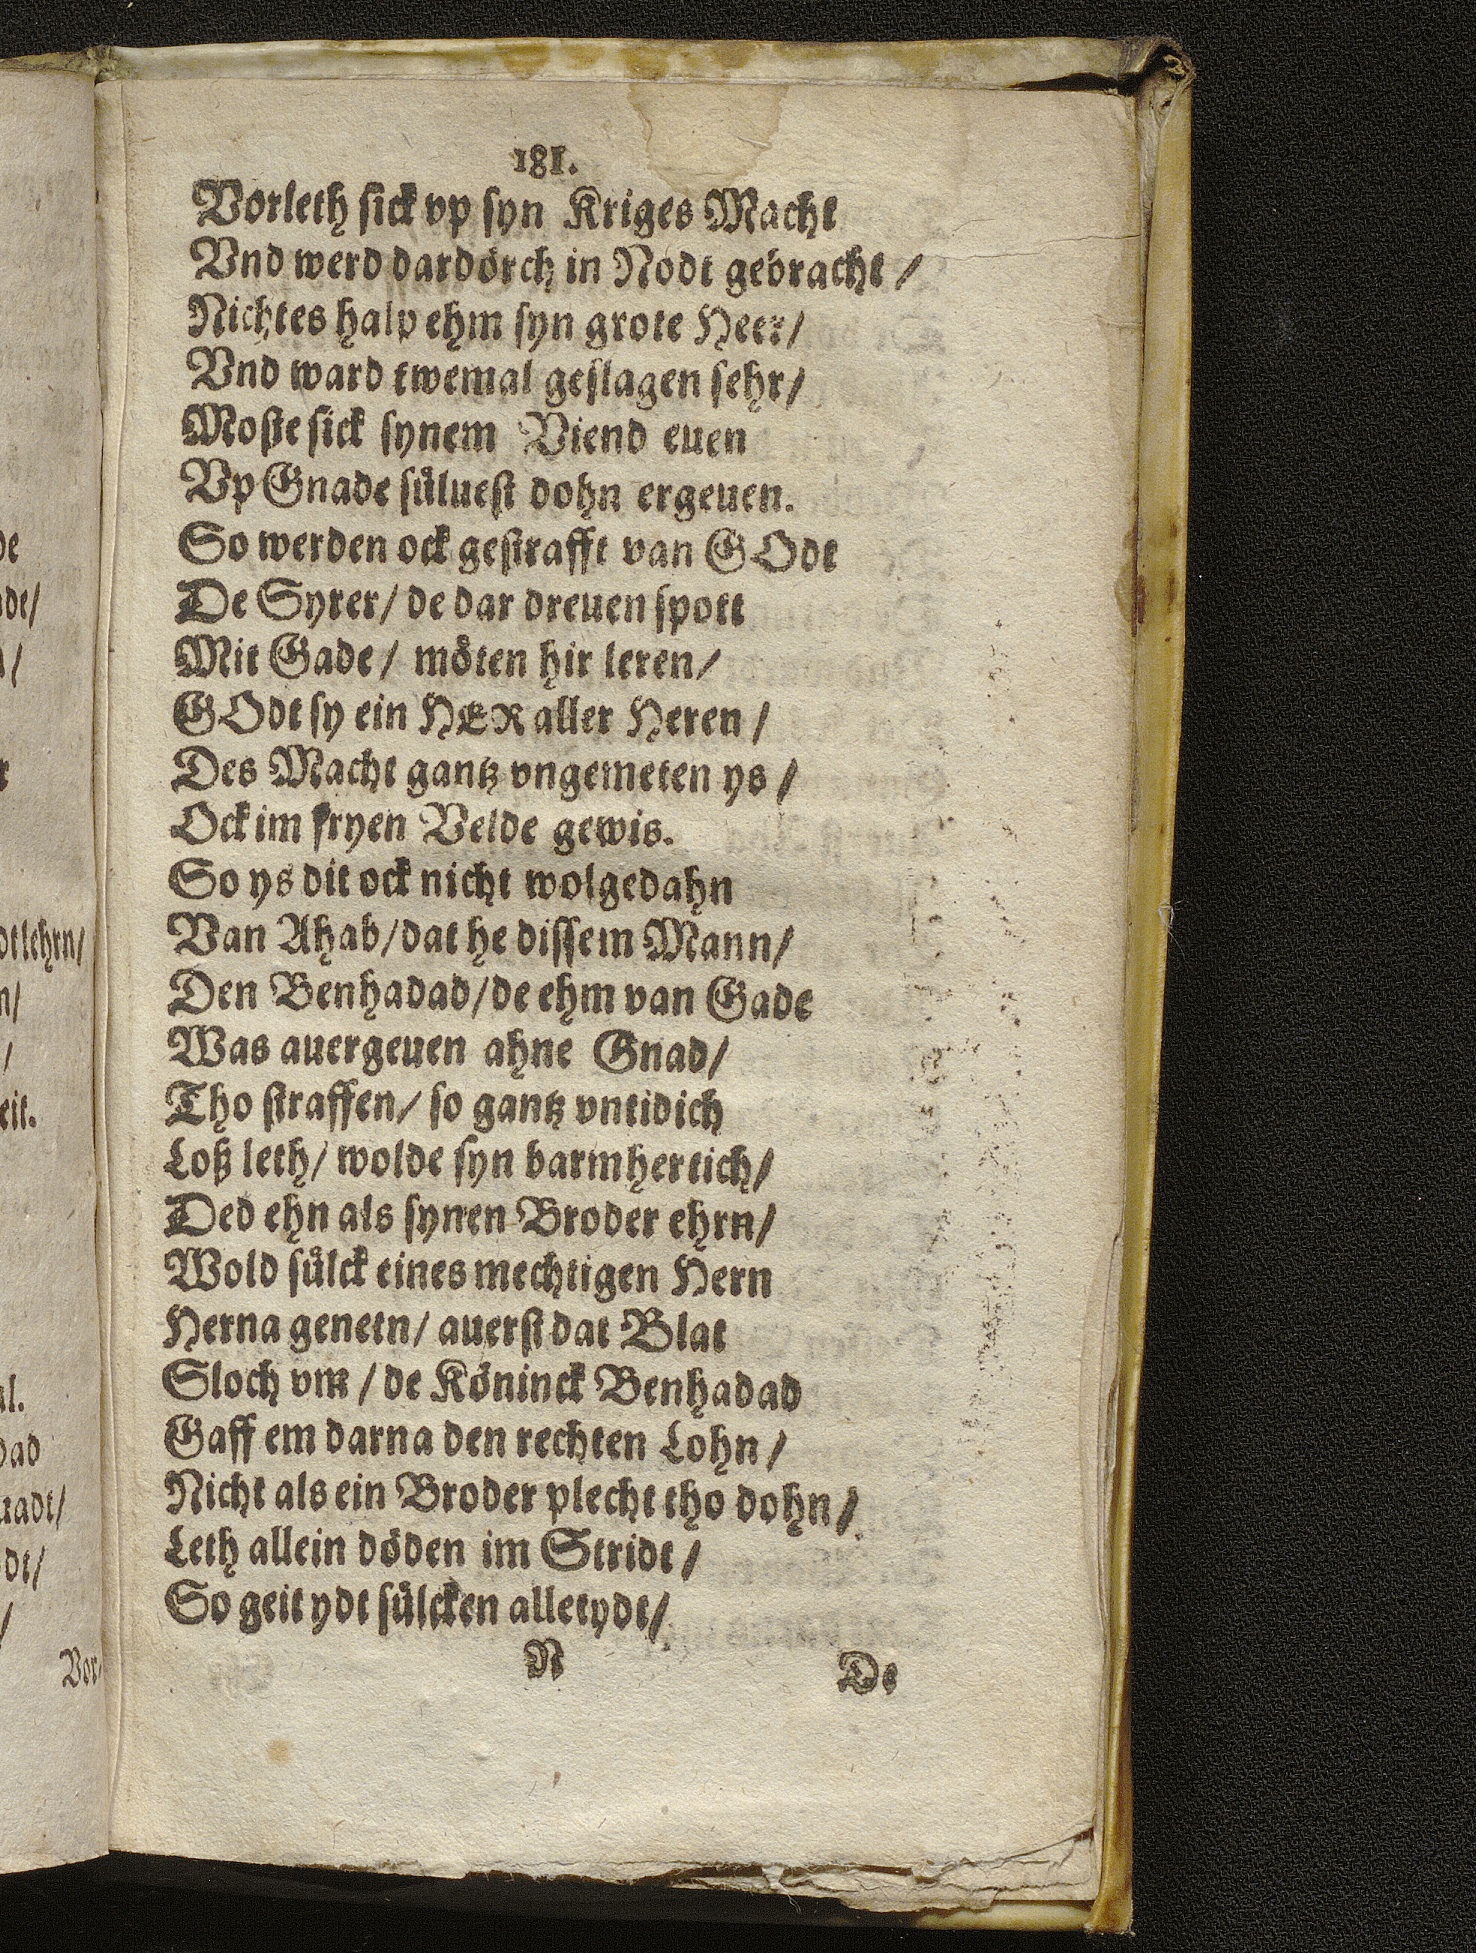 181.
Vorleth sick vp syn Kriges Macht
Vnd werd dardörch in Nodt gebracht /
Nichtes halp ehm syn grote Heer/
Vnd ward twemal geslagen sehr/
Moste sick synem Viend euen
Vp Gnade süluest dohn ergeuen.
So werden ock gestrafft van GOdt
De Syrer/ de dar dreuen spott
Mit Gade/ möten hir leren/
GOdt sy ein HER aller Heren /
Des Macht gantz vngemeten ys /
Ock im fryen Velde gewis.
So ys dit ock nicht wolgedahn
Van Ahab/dat he dissem Mann/
Den Benhadad/de ehm van Gade
Was auergeuen ahne Gnad/
Tho straffen/ so gantz vntidich
Loß leth/ wolde syn barmhertich/
Ded ehn als synen Broder ehrn/
Wold sülck eines mechtigen Hern
Herna genetn/ auerst dat Blat
Sloch vm / de Köninck Benhadad
Gaff em darna den rechten Lohn /
Nicht als ein Broder plecht tho dohn/
Leth allein döden im Stridt /
So geit ydt sülcken alletydt/
N
De